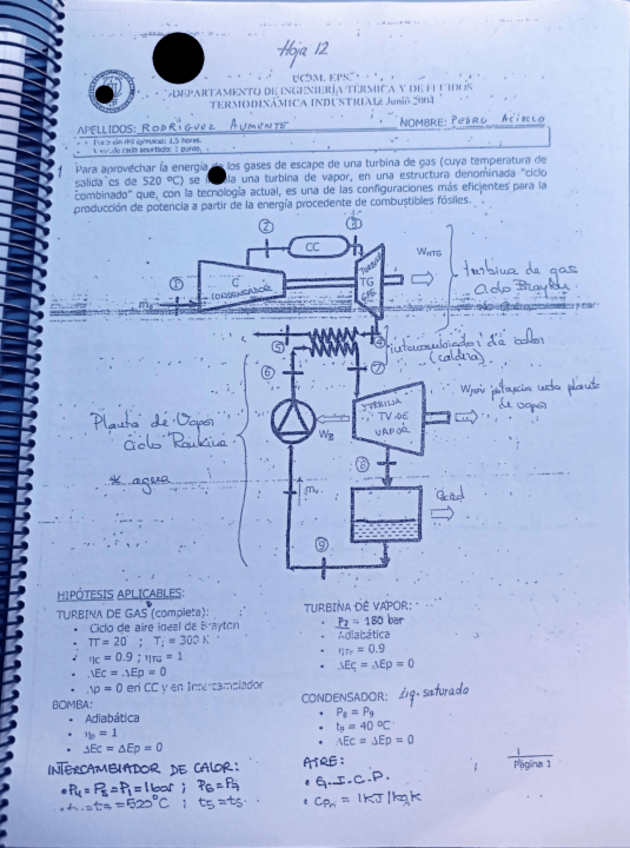 Hoja 12
UC3M. EPS.
DEPARTAMENTO DE INGENIERÍA TÉRMICA Y DE FLUIDOS
TERMODINÁMICA INDUSTRIAL: Junio
APELLIDOS: RODRÍGUEZ AUMENTE NOMBRE: PEDRO ACISCLO
1,5 horas.
1 punto.
1 Para aprovechar la energía de los gases de escape de una turbina de gas (cuya temperatura de
salida es de 520 ºC) se una turbina de vapor, en una estructura denominada "ciclo
combinado" que, con la tecnología actual, es una de las configuraciones más eficientes para la
producción de potencia a partir de la energía procedente de combustibles fósiles.
2
CC
3
WNTG
turbina de gas
ciclo Brayton
1
C
TURBINA
TG
4
5
intercambiador de calor
(caldera)
6
7
Planta de Vapor
Ciclo Rankine
* agua
WB
TURBINA
TV DE
VAPOR
WNTV potencia neta planta
de vapor
8
Qced
9
HIPÓTESIS APLICABLES:
TURBINA DE GAS (completa):
• Ciclo de aire ideal de Brayton
• π = 20 ; T1 = 300 K
• ηC = 0.9 ; ηTG = 1
• ΔEc = ΔEp = 0
• Δp = 0 en CC y en Intercambiador
BOMBA:
• Adiabática
• ηB = 1
• ΔEc = ΔEp = 0
INTERCAMBIADOR DE CALOR:
• P4 = P5 = P1 = 1bar ; P6 = P7
t7 = 520ºC ; t5 = t6
TURBINA DE VAPOR:
• P7 = 180 bar
• Adiabática
• ηTV = 0.9
• ΔEc = ΔEp = 0
CONDENSADOR: Liq. saturado
• P8 = P9
• t9 = 40 ºC
• ΔEc = ΔEp = 0
AIRE:
• G.I.C.P.
• CP = 1KJ/KgK
1
Página 1